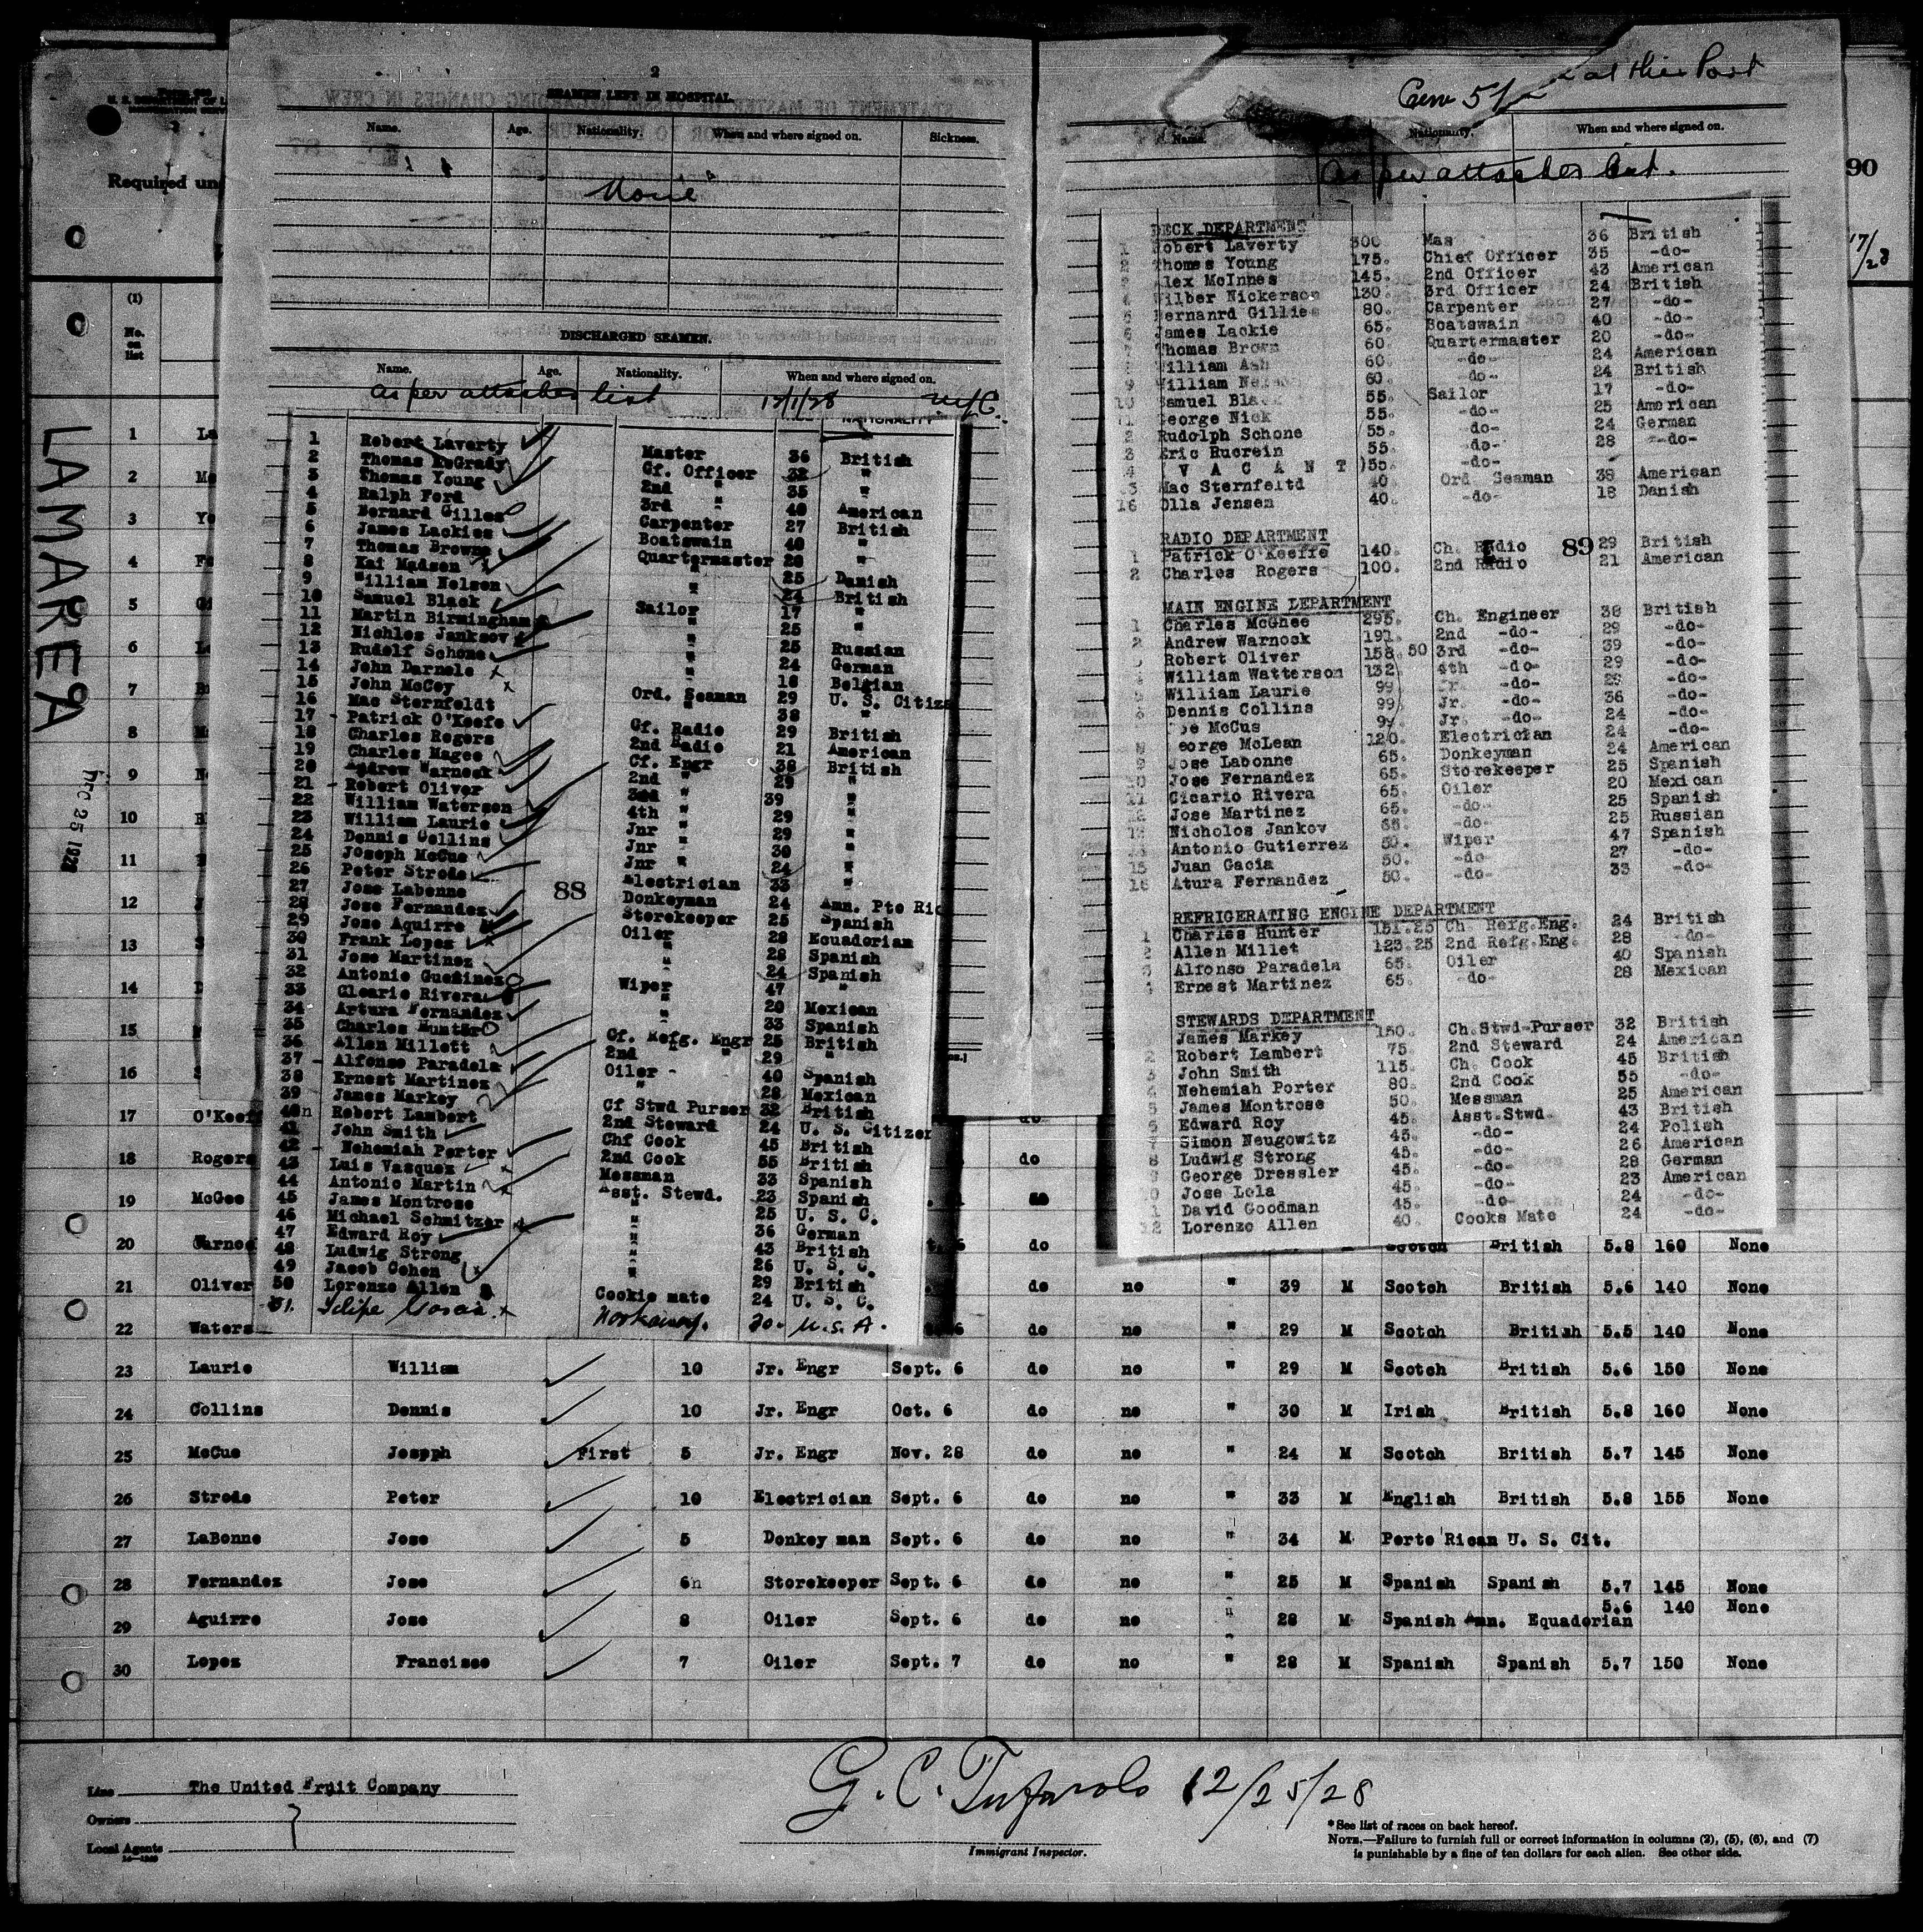 2
SEAMEN LEFT IN HOSPITAL.
Name. Age. Nationality. When and where signed on. Sickness.
None
DISCHARGED SEAMEN.
Name. Age. Nationality. When and where signed on.
as per attached list 12/1/28
NATIONALITY
1 Robert Laverty Master 36 British
2 Thomas McGrady Cf. Officer 32 "
3 Thomas Young 2nd " 35 "
4 Ralph Ford 3rd " 40 American
5 Bernard Gilles Carpenter 27 British
6 James Lackies Boatswain 40 "
7 Thomas Browne Quartermaster 20 "
8 Kai Madsen " 25 Danish
9 William Nelson " 24 British
10 Samuel Black Sailor 17 "
11 Martin Birmingham " 25 "
12 Nichlos Janksov " 25 Russian
13 Rudolf Schone " 24 German
14 John Darnele " 18 Belgian
15 John McCoy Ord. Seaman 29 U. S. Citiz
16 Mac Sternfeldt " 38 "
17 - Patrick O'Keefe Cf. Radio 29 British
18 Charles Rogers 2nd Radio 21 American
19 Charles Magee Cf. Engr 38 British
20 Andrew Warnock 2nd " 29 "
21 - Robert Oliver 3rd " 39 "
22 William Waterson 4th " 29 "
23 William Laurie Jnr " 29 "
24 Dennis Collins Jnr " 30 "
25 Joseph McCue Jnr " 24 "
26 Peter Strode Electrician 33 "
27 Jose Labonne Donkeyman 24 Amn. Pto Ric
28 Jose Fernandez Storekeeper 25 Spanish
29 Jose Aquirre Oiler 28 Ecuadorian
30 Frank Lopez " 28 Spanish
31 Jose Martinez " 24 Spanish
32 Antonio Wiper 47 "
33 Rivera " 20 Mexican
34 Artura Fernandez " 33 Spanish
35 Charles Hunter Cf. Refg. Engr 25 British
36 Allen Millett 2nd " " 29 "
37 - Alfonso Paradela Oiler - 40 Spanish
38 Ernest Martinez " 28 Mexican
39 James Markey Cf Stwd Purser 32 British
40n Robert Lambert 2nd Steward 24 U. S. Citizen
41 John Smith Chf Cook 45 British
42 - Nehemiah Porter 2nd Cook 55 British
43 Luis Vasquez Messman 33 Spanish
44 Antonio Martin Asst. Stewd. 23 Spanish
45 James Montrose " 25 U. S. C.
46 Michael Schmitzer " 36 German
47 Edward Roy " 43 British
48 Ludwig Strong " 26 U. S. C.
49 Jacob Cohen " 29 British
50 Lorenzo Allen Cookie mate 24 U. S. C.
51. Workaway. 30. U.S.A.
88
Crew 51 at this Port
Name. Nationality. When and where signed on.
as per attached list.
DECK DEPARTMENT
1 Robert Laverty 300 Mas 36 British
2 Thomas Young 175. Chief Officer 35 -do-
3 Alex McInnes 145. 2nd Officer 43 American
4 Wilber Nickerson 130. 3rd Officer 24 British
5 Bernanrd Gillies 80. Carpenter 27 -do-
6 James Lackie 65. Boatswain 40 -do-
7 Thomas Brown 60. Quartermaster 20 -do-
8 William Ash 60. -do- 24 American
9 William Nelson 60. -do- 24 British
10 Samuel Black 55. Sailor 17 -do-
11 George Nick 55. -do- 25 American
2 Rudolph Schone 55. -do- 24 German
3 Eric Rucrein 55. -do- 28 -do-
4 ( V A C A N T )55. -do-
15 Mac Sternfeltd 40. Ord Seaman 38 American
16 Olla Jensen 40. -do- 18 Danish
RADIO DEPARTMENT
1 Patrick O'Keeffe 140. Ch. Radio 29 British
2 Charles Rogers 100. 2nd Radio 21 American
89
MAIN ENGINE DEPARTMENT
1 Charles McGhee 295. Ch. Engineer 38 British
2 Andrew Warnock 191. 2nd -do- 29 -do-
3 Robert Oliver 158.50 3rd -do- 39 -do-
4 William Watterson 132. 4th -do- 29 -do-
5 William Laurie 99 Jr. -do- 29 -do-
6 Dennis Collins 99. Jr. -do- 36 -do-
Joe McCus 99. Jr. -do- 24 -do-
8 George McLean 120. Electrician 24 -do-
9 Jose Labonne 65. Donkeyman 24 American
10 Jose Fernandez 65. Storekeeper 25 Spanish
11 Cicario Rivera 65. Oiler 20 Mexican
12 Jose Martinez 65. -do- 25 Spanish
13 Nicholos Jankov 65. -do- 25 Russian
Antonio Gutierrez 50. Wiper 47 Spanish
15 Juan Gacia 50. -do- 27 -do-
16 Atura Fernandez 50. -do- 33 -do-
REFRIGERATING ENGINE DEPARTMENT
1 Charles Hunter 151.25 Ch. Refg.Eng. 24 British
2 Allen Millet 123.25 2nd Refg.Eng. 28 -do-
3 Alfonso Paradela 65. Oiler 40 Spanish
4 Ernest Martinez 65. -do- 28 Mexican
STEWARDS DEPARTMENT
James Markey 150. Ch.Stwd-Purser 32 British
2 Robert Lambert 75. 2nd Steward 24 American
3 John Smith 115. Ch. Cook 45 British
4 Nehemiah Porter 80. 2nd Cook 55 -do-
5 James Montrose 50. Messman 25 American
6 Edward Roy 45. Asst.Stwd. 43 British
7 Simon Neugowitz 45. -do- 24 Polish
8 Ludwig Strong 45. -do- 26 American
9 George Dressler 45. -do- 28 German
0 Jose Lola 45. -do- 23 American
1 David Goodman 45. -do- 24 -do-
12 Lorenzo Allen 40. Cooks Mate 24 -do-
Required un
90
17/28
LAMAREA
DEC 25 1928
(1)
No. on list
1 La
2 Mc
3 Yo
4 Fo
5 Gi
6 La
7 B
8 M
9 N
10 B
11
12
13 S
14 D
15
16 S
17 O'Keef do
18 Rogers do
19 McGee do
20 Warnoc do Scotch British 5.8 160 None
21 Oliver do no " 39 M Scotch British 5.6 140 None
22 Waters do no " 29 M Scotch British 5.5 140 None
23 Laurie William 10 Jr. Engr Sept. 6 do no " 29 M Scotch British 5.6 150 None
24 Collins Dennis 10 Jr. Engr Oct. 6 do no " 30 M Irish British 5.8 160 None
25 McCue Jospph First 5 Jr. Engr Nov. 28 do no " 24 M Scotch British 5.7 145 None
26 Strode Peter 10 Electrician Sept. 6 do no " 33 M English British 5.8 155 None
27 LaBonne Jose 5 Donkey man Sept. 6 do no " 34 M Porto Rican U. S. Cit.
28 Fernandez Jose 6n Storekeeper Sept. 6 do no " 25 M Spanish Spanish 5.7 145 None
29 Aguirre Jose 8 Oiler Sept. 6 do no " 28 M Spanish Amn. Equadorian 5.6 140 None
30 Lopez Francisco 7 Oiler Sept. 7 do no " 28 M Spanish Spanish 5.7 150 None
Line The United Fruit Company
Owners
Local Agents
14-1249
G. C. Tufarolo 12/25/28
Immigrant Inspector.
* See list of races on back hereof.
NOTE.—Failure to furnish full or correct information in columns (2), (5), (6), and (7)
is punishable by a fine of ten dollars for each alien. See other side.